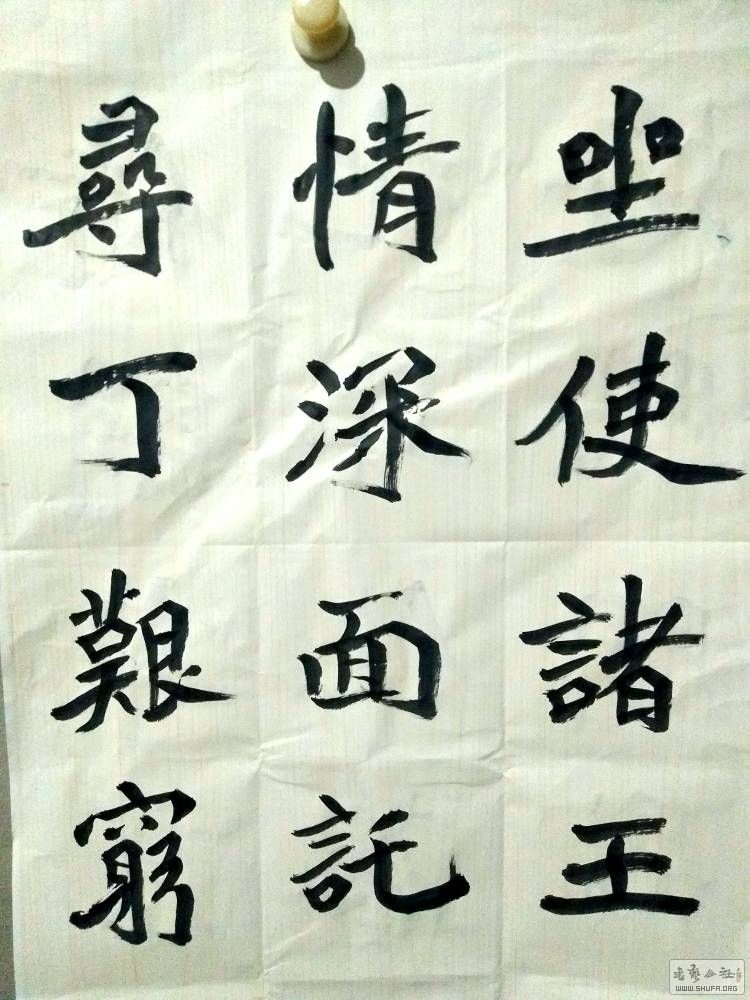 坐使諸王
情深面託
尋丁艱窮
WWW.SHUFA.ORG